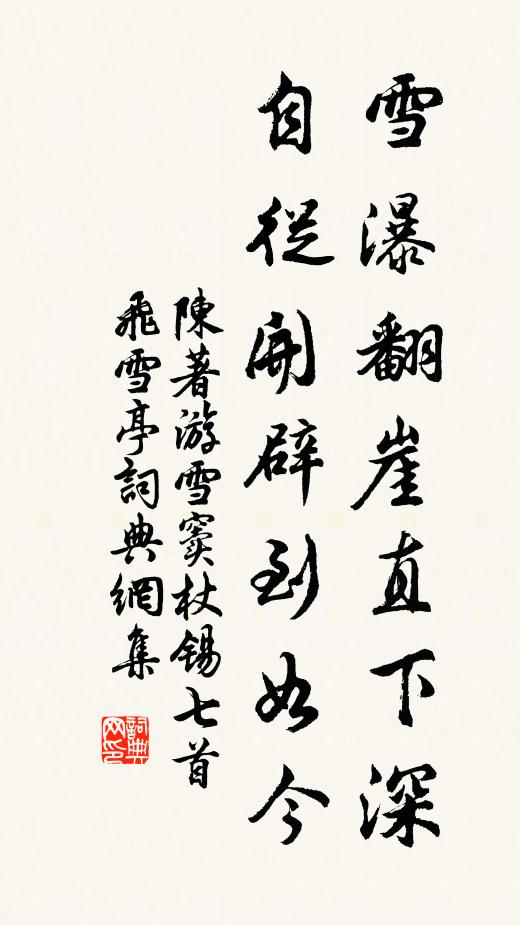 雪瀑翻崖直下深
自從開辟到如今
陳著游雪竇杖錫七首
飛雪亭詞典網集
詞典網印